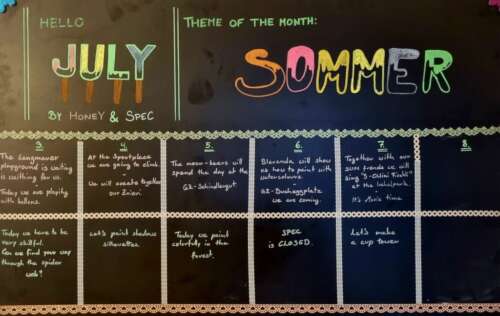 HELLO
JULY
BY HONEY & SPEC
THEME OF THE MONTH:
SOMMER
3.
The Langmauer
playground is waiting
is waiting for us.
Today we are playing
with balloons.
4.
At the Sportplace
we are going to climb.
We will create together
our Znüni.
5.
The moon-bears will
spend the day at the
GZ-Schindlergut.
6.
will show
us how to paint with
watercolours.
GZ-Buchegplatz
we are coming.
7.
Together with our
sun friends we will
sing
at the
It's Movie time
8.
Today we have to be
very skilful.
Can we find your way
through the spider
web?
Let's paint shadow
silhouettes.
Today we paint
colorfully in the
forest.
SPEC
is CLOSED.
Let's make
a cup tower